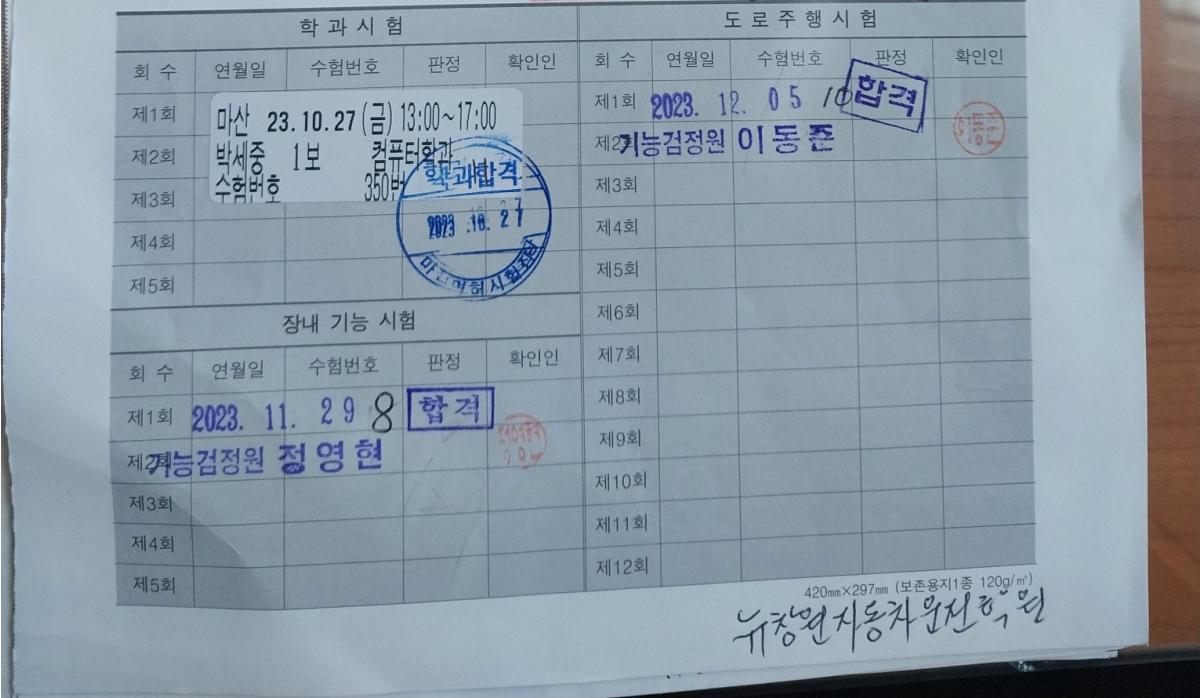 학과시험
회 수 연월일 수험번호 판정 확인인
제1회
제2회
제3회
제4회
제5회
마산 23.10.27(금) 13:00~17:00
박세중 1보 컴퓨터학과
수험번호 350번
학과합격
2023.10.27
장내 기능 시험
회 수 연월일 수험번호 판정 확인인
제1회 2023. 11. 29 8 합격
제2회 기능검정원 정영현
제3회
제4회
제5회
도로주행시험
회 수 연월일 수험번호 판정 확인인
제1회 2023. 12. 05 10 합격
제2회 기능검정원 이동준
제3회
제4회
제5회
제6회
제7회
제8회
제9회
제10회
제11회
제12회
420㎜×297㎜ (보존용지1종 120g/㎡)
뉴창원자동차운전학원